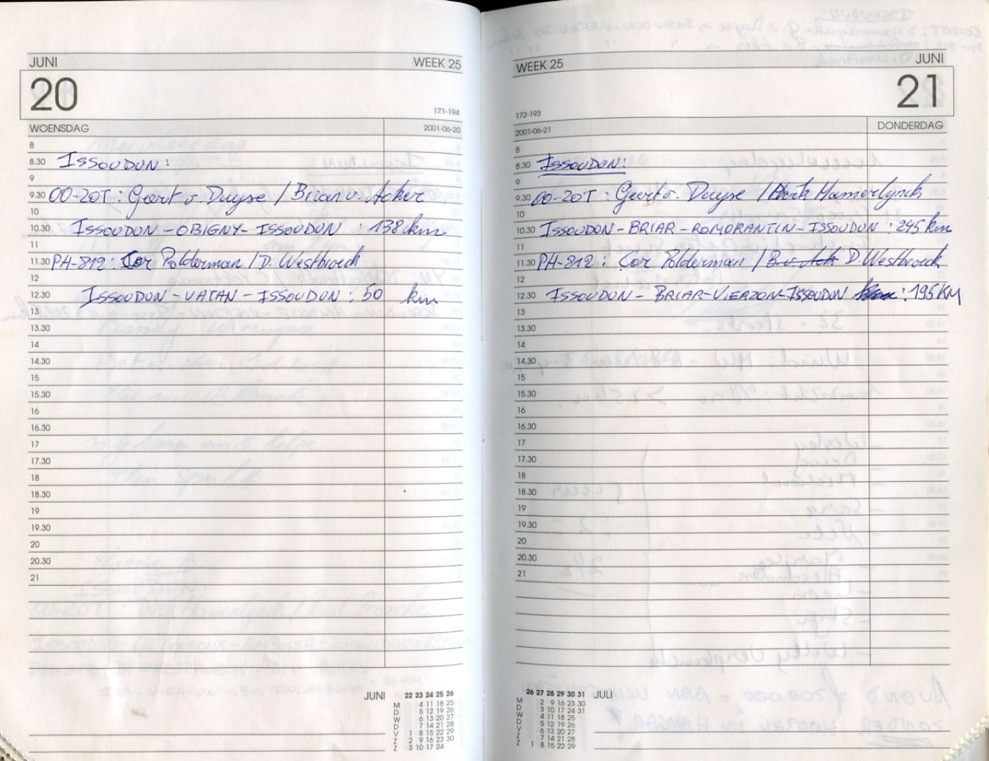 JUNI WEEK 25
20
171-194
WOENSDAG 2001-06-20
8
8.30 ISSOUDUN:
9
9.30 OO-ZOT: Geert v. Duyse / Brian v. Acker
10
10.30 ISSOUDUN-OBIGNY-ISSOUDUN : 138 km
11
11.30 PH-812: Cor Polderman / D. Westbroek
12
12.30 ISSOUDUN-VATAN-ISSOUDUN : 50 km
13
13.30
14
14.30
15
15.30
16
16.30
17
17.30
18
18.30
19
19.30
20
20.30
21
JUNI 22 23 24 25 26
M 4 11 18 25
D 5 12 19 26
W 6 13 20 27
D 7 14 21 28
V 1 8 15 22 29
Z 2 9 16 23 30
Z 3 10 17 24
WEEK 25 JUNI
21
172-193
2001-06-21 DONDERDAG
8
8.30 ISSOUDUN:
9
9.30 OO-ZOT: Geert v. Duyse / Hamerlynck
10
10.30 ISSOUDUN-BRIAR-ROMORANTIN-ISSOUDUN : 295 km
11
11.30 PH-812: Cor Polderman / D. Westbroek
12
12.30 ISSOUDUN-BRIAR-VIERZON-ISSOUDUN : 195 KM
13
13.30
14
14.30
15
15.30
16
16.30
17
17.30
18
18.30
19
19.30
20
20.30
21
26 27 28 29 30 31 JULI
M 2 9 16 23 30
D 3 10 17 24 31
W 4 11 18 25
D 5 12 19 26
V 6 13 20 27
Z 7 14 21 28
Z 1 8 15 22 29